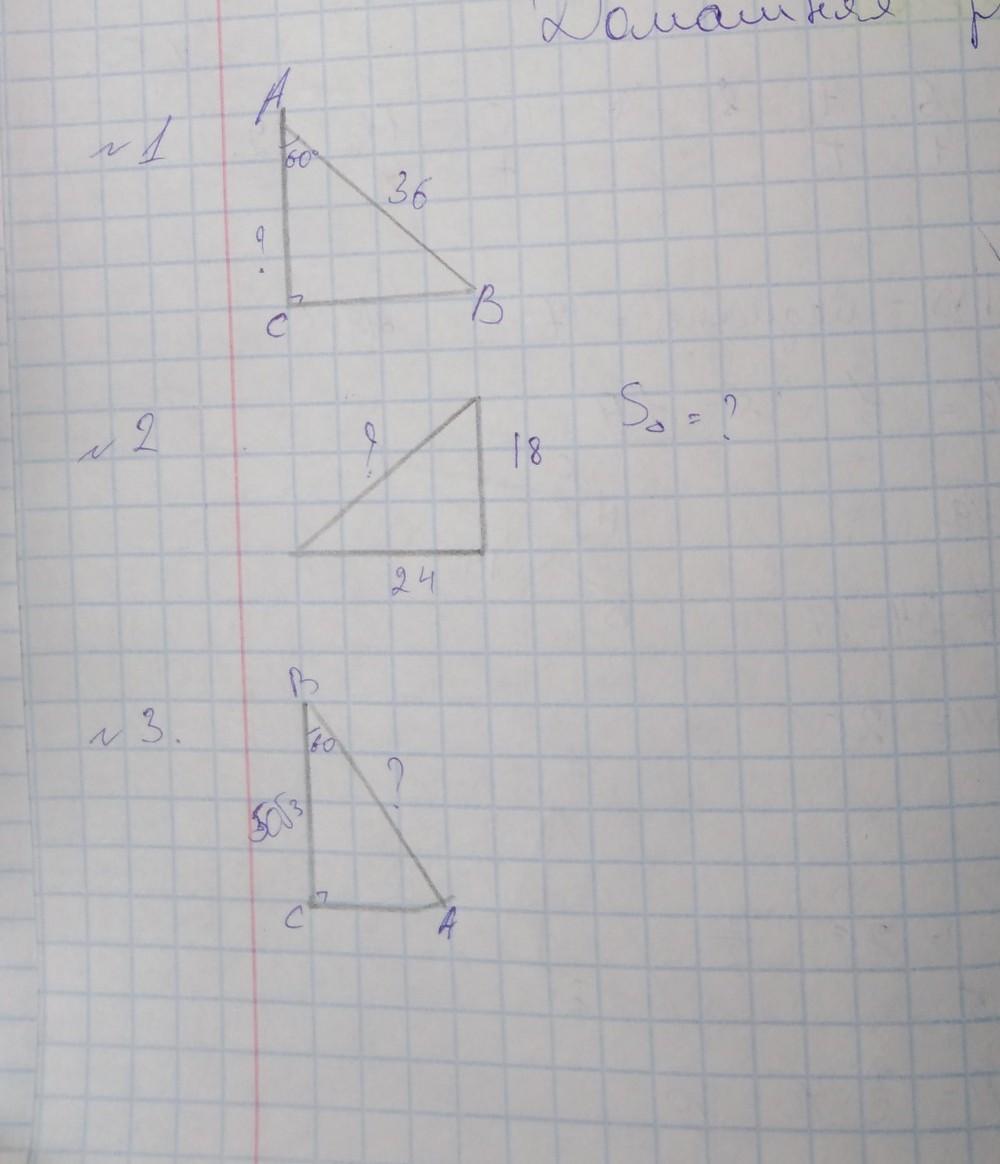 Домашняя р
№1
A
60°
36
?
C
B
№2
?
18
S△ = ?
24
№3.
B
60
?
50√3
C
A